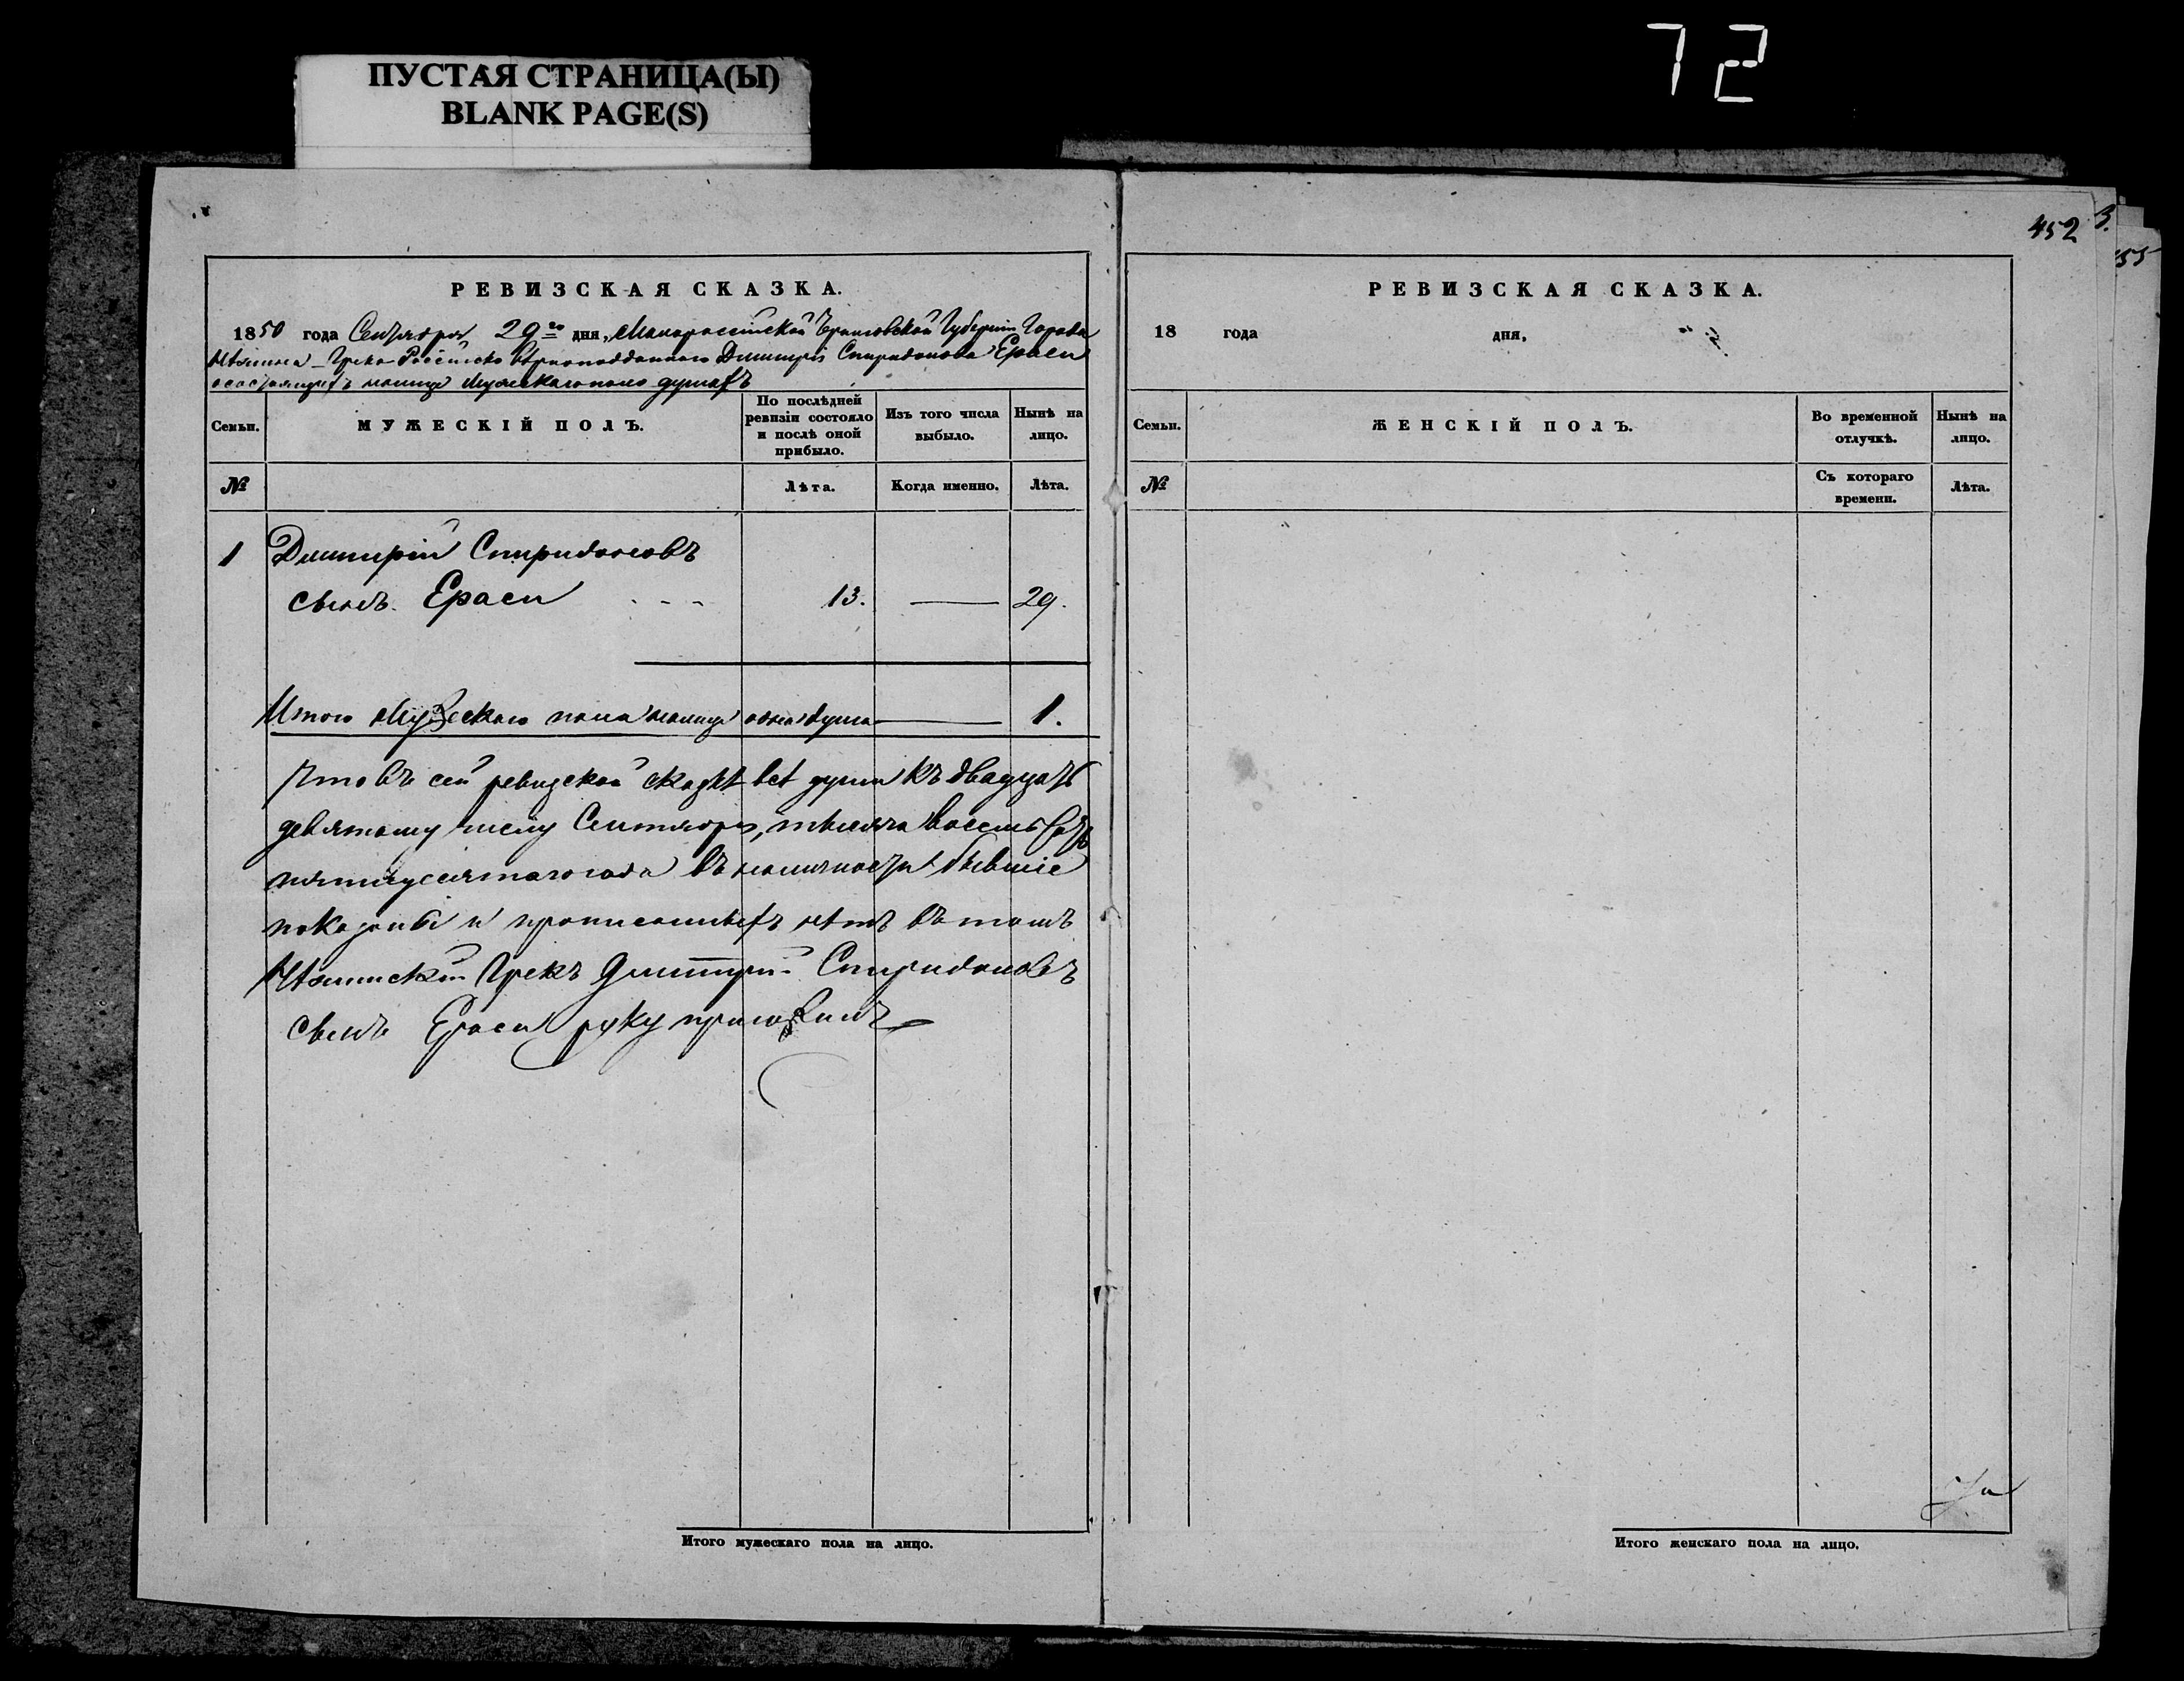 72
ПУСТАЯ СТРАНИЦА(Ы)
BLANK PAGE(S)
452
55
РЕВИЗСКАЯ СКАЗКА.
1850 года Сентября 29го дня, Малороссійской Черниговской Губерніи Города
Нѣжина Греко-Россійско вѣрноподданнаго Димитрія Спиридонова Ераси
о состоящихъ налицо Мужескаго пола душахъ
Семьи.
МУЖЕСКІЙ ПОЛЪ.
По послѣдней ревизіи состояло и послѣ оной прибыло.
Изъ того числа выбыло.
Нынѣ на лицо.
№
Лѣта.
Когда именно.
Лѣта.
1 Димитрій Спиридоновъ
сынъ Ераси - - - 13. — 29.
Итого Мужескаго пола налицо одна душа — 1.
Что въ сей ревизской сказкѣ всѣ души къ двадцать
девятому числу Сентября, тысяча восемьсотъ
пятидесятаго года въ наличности бывшіе
показаны и прописныхъ нѣтъ въ томъ
Нѣжинскій Грекъ Дмитрій Спиридоновъ
сынъ Ераси руку приложилъ
Итого мужескаго пола на лицо.
РЕВИЗСКАЯ СКАЗКА.
18 года дня,
Семьи.
ЖЕНСКІЙ ПОЛЪ.
Во временной отлучкѣ.
Нынѣ на лицо.
№
Съ котораго времени.
Лѣта.
Итого женскаго пола на лицо.